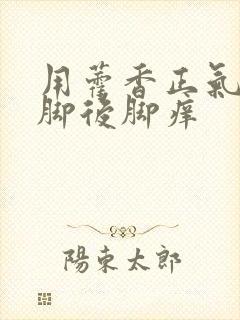 用藿香正氣
脚後脚痒
陽東太郎